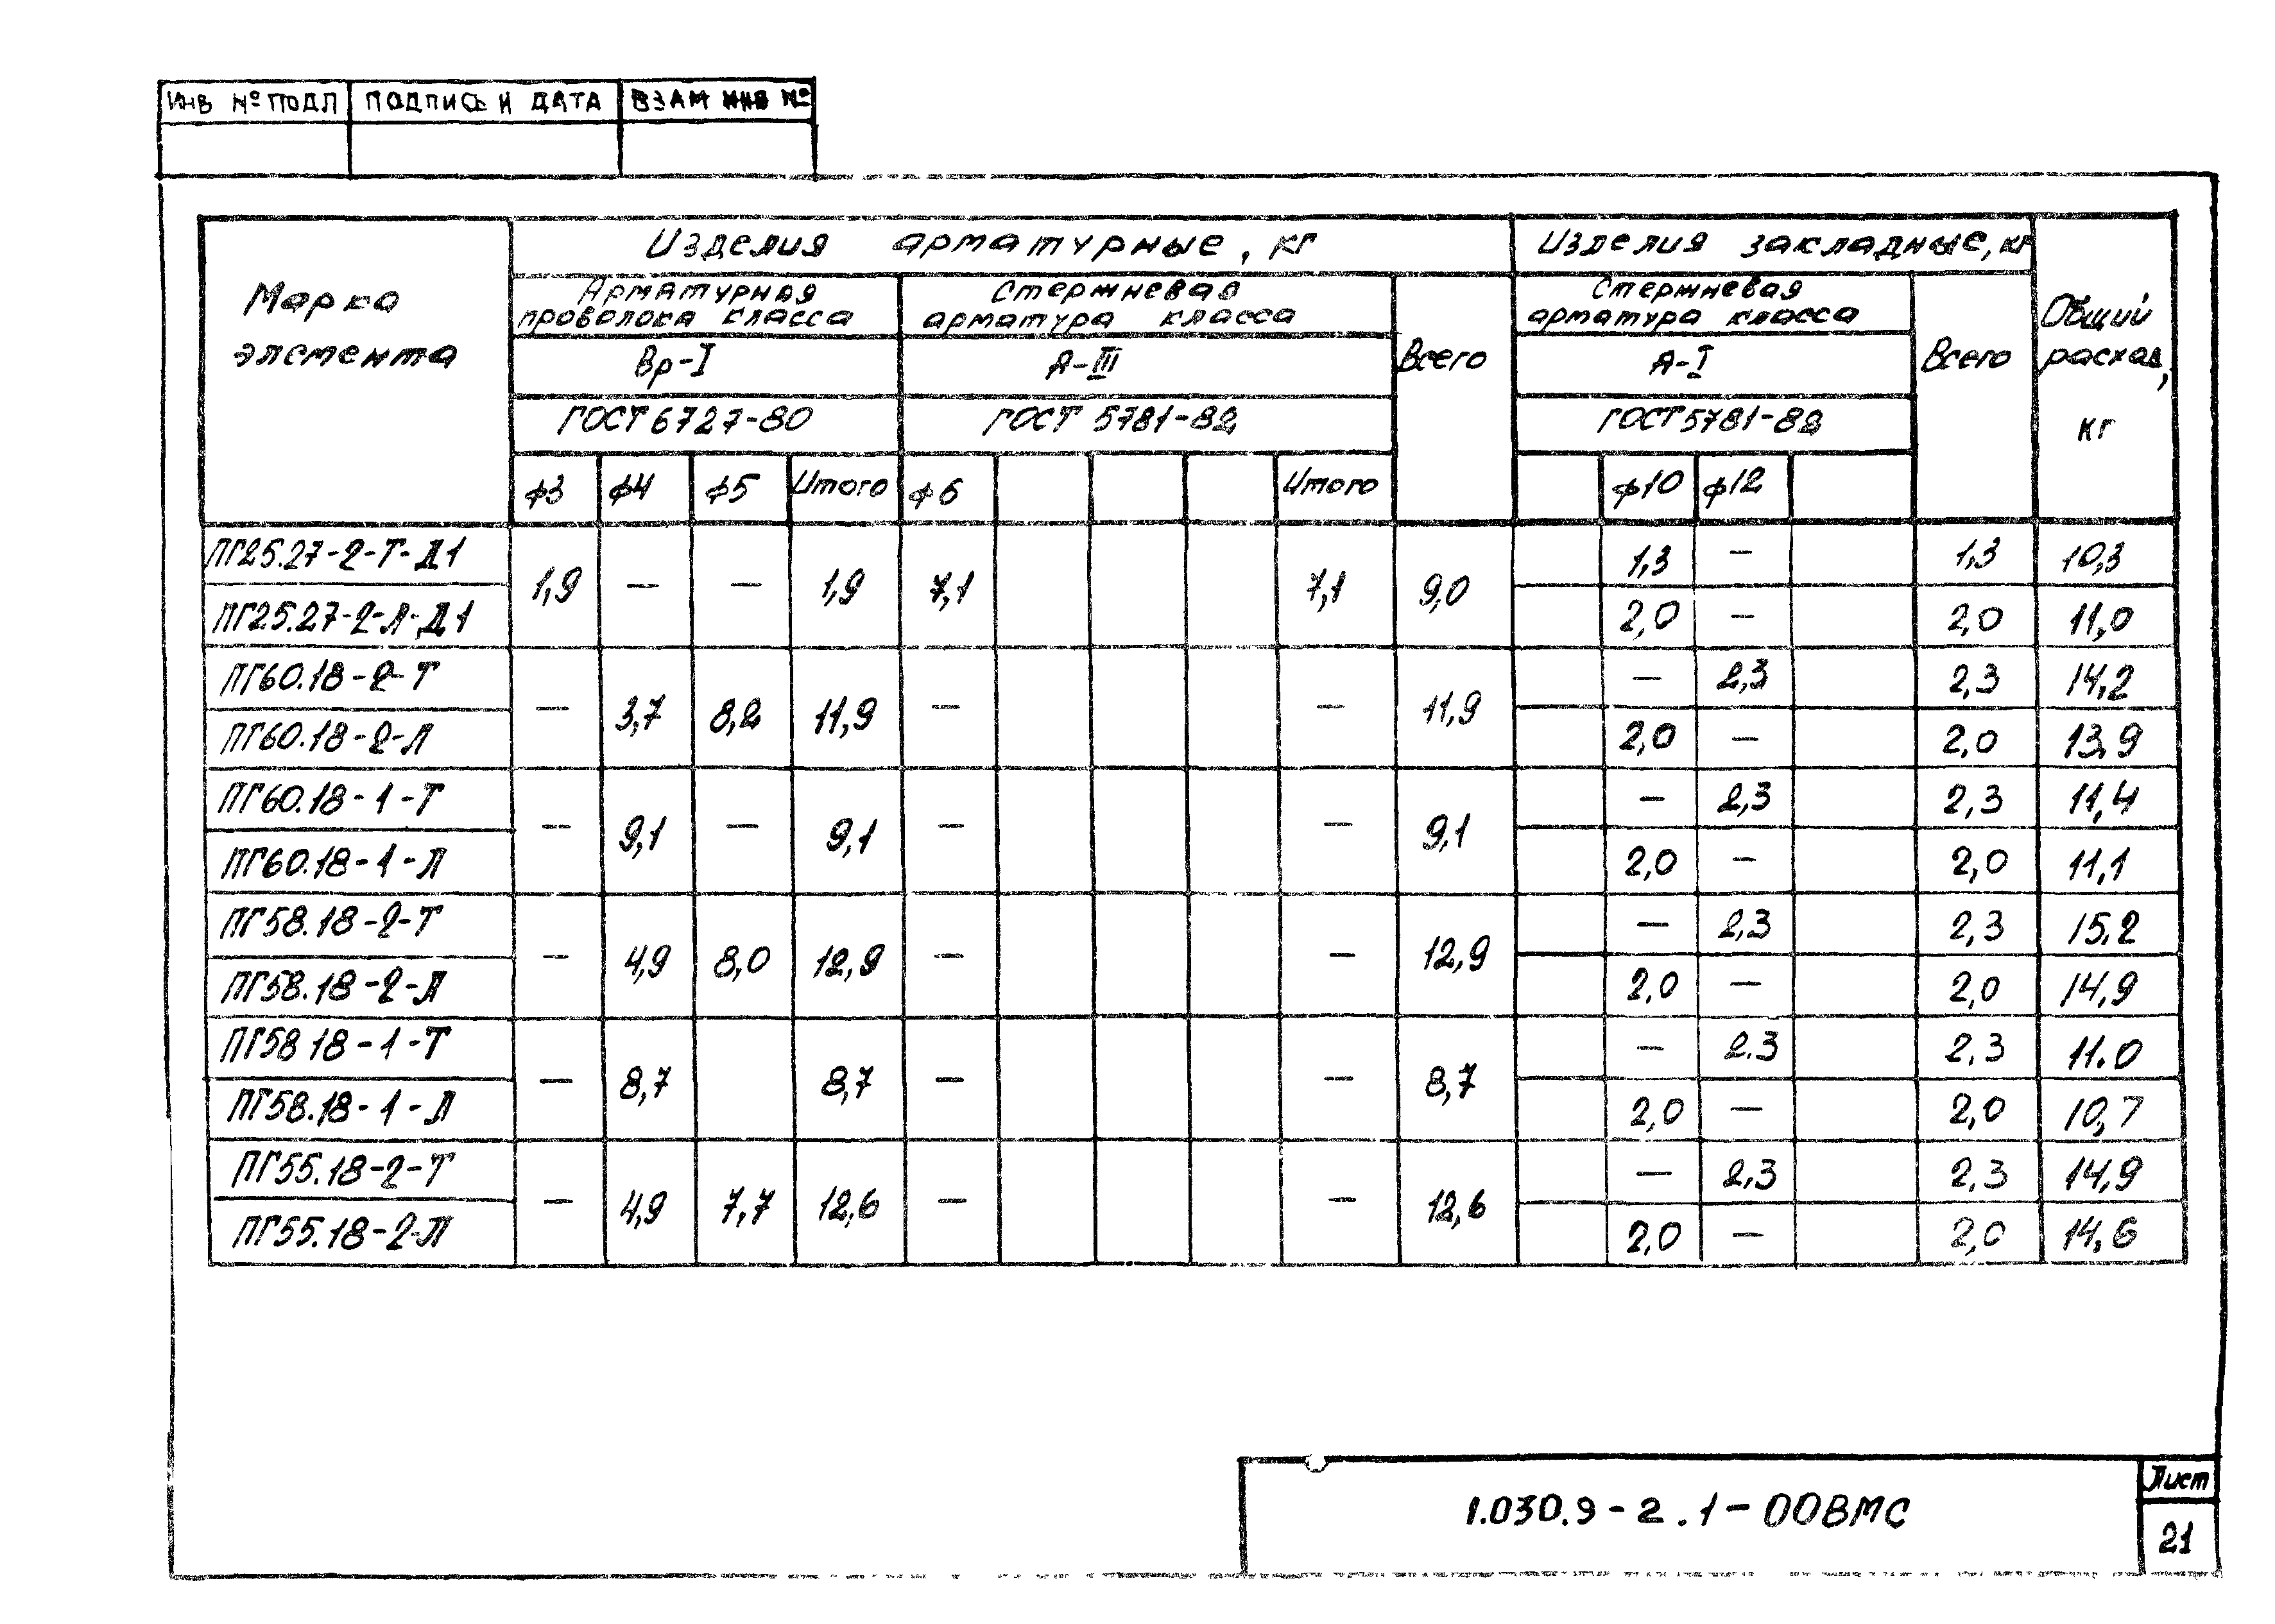 ИНВ № ПОДЛ ПОДПИСЬ И ДАТА ВЗАМ ИНВ №
Марка элемента
Изделия арматурные, кг
Изделия закладные, кг
Общий расход, кг
Арматурная проволока класса
Стержневая арматура класса
Всего
Стержневая арматура класса
Всего
Вр-I
А-III
А-I
ГОСТ 6727-80
ГОСТ 5781-82
ГОСТ 5781-82
ф3 ф4 ф5 Итого ф6 Итого ф10 ф12
ПГ25.27-2-Т-Д1 1,3 — 1,3 10,3
1,9 — — 1,9 7,1 7,1 9,0
ПГ25.27-2-Л-Д1 2,0 — 2,0 11,0
ПГ60.18-2-Т — 2,3 2,3 14,2
— 3,7 8,2 11,9 — — 11,9
ПГ60.18-2-Л 2,0 — 2,0 13,9
ПГ60.18-1-Т — 2,3 2,3 11,4
— 9,1 — 9,1 — — 9,1
ПГ60.18-1-Л 2,0 — 2,0 11,1
ПГ58.18-2-Т — 2,3 2,3 15.2
— 4,9 8,0 12,9 — — 12,9
ПГ58.18-2-Л 2,0 — 2,0 14,9
ПГ58 18-1-Т — 2.3 2,3 11.0
— 8,7 8,7 — — 8,7
ПГ58.18-1-Л 2,0 — 2,0 10,7
ПГ55.18-2-Т — 2,3 2,3 14,9
— 4,9 7,7 12,6 — — 12,6
ПГ55.18-2-Л 2,0 — 2,0 14,6
1.030.9-2.1-00ВМС
Лист
21